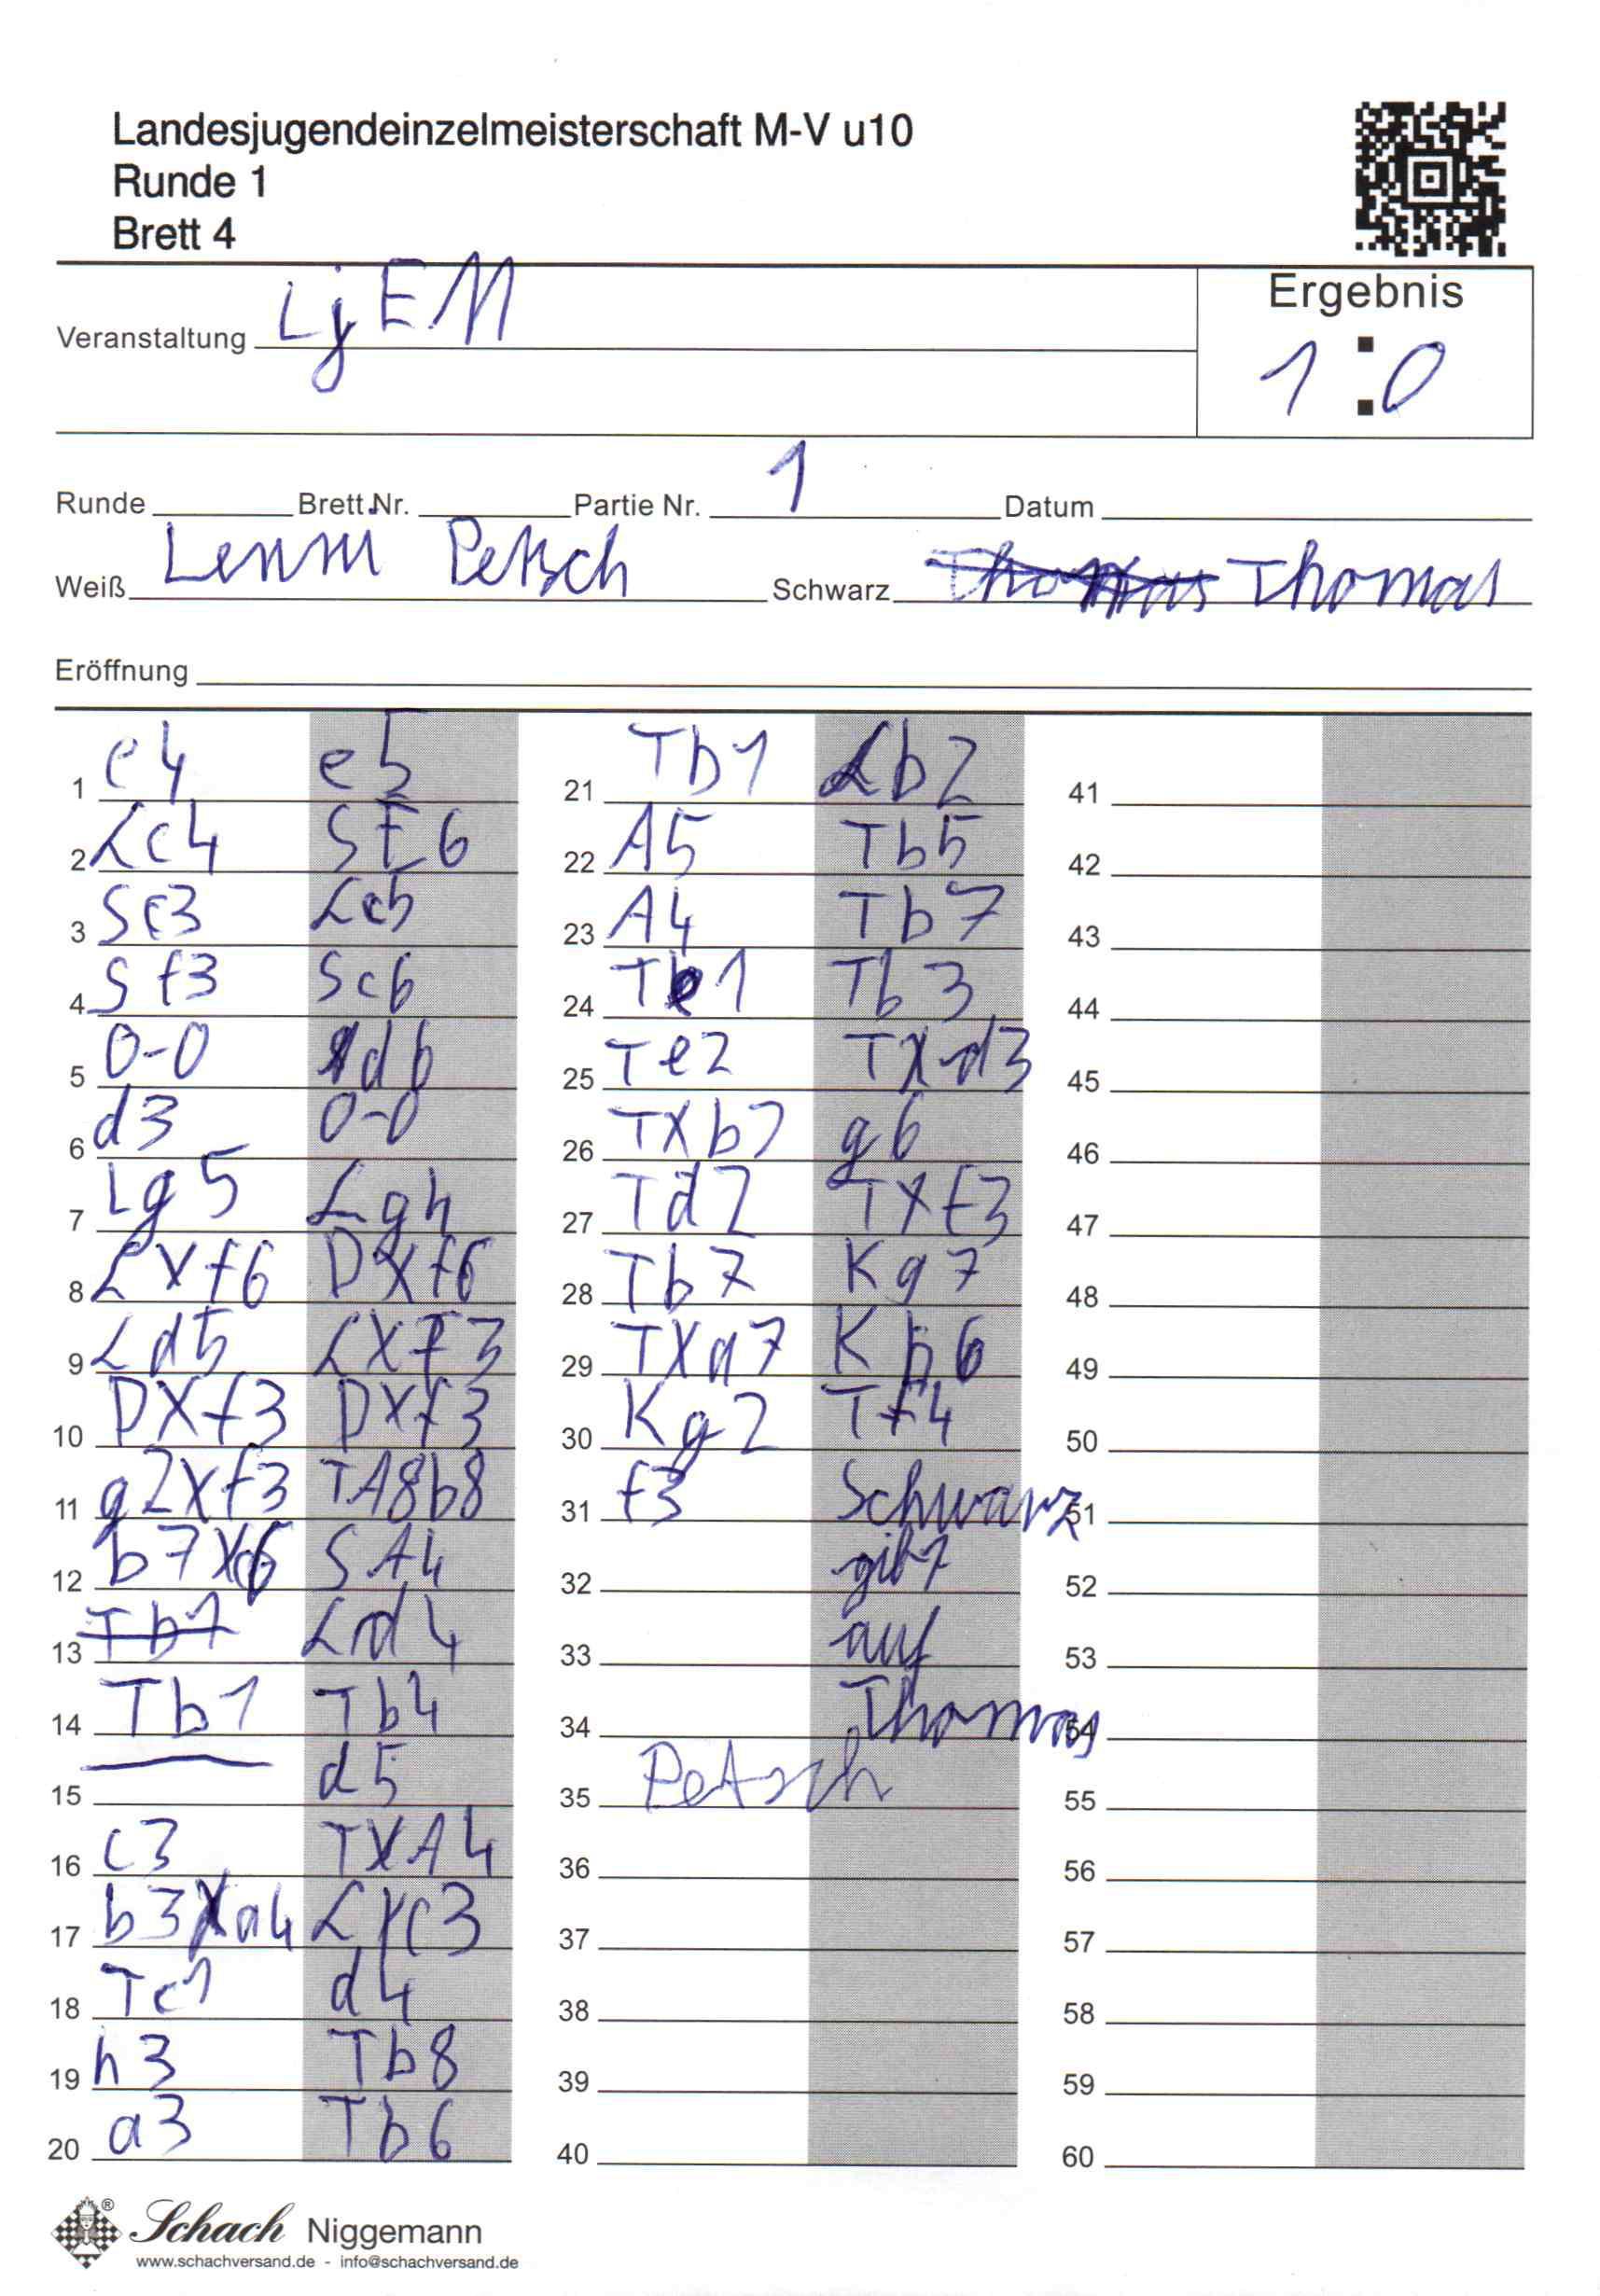 Landesjugendeinzelmeisterschaft M-V u10
Runde 1
Brett 4
Veranstaltung LjEM
Ergebnis
1:0
Runde Brett Nr. Partie Nr. 1 Datum
Weiß Lenni Petsch Schwarz Thomas Thomas
Eröffnung
1 e4 e5
2 Lc4 Sf6
3 Sc3 Lc5
4 Sf3 Sc6
5 0-0 d6
6 d3 0-0
7 Lg5 Lg4
8 LXf6 DXf6
9 Ld5 LXf3
10 DXf3 DXf3
11 g2Xf3 TA8b8
12 b7Xc6 SA4
13 Tb1 Ld4
14 Tb1 Tb4
15 d5
16 c3 TXA4
17 b3Xa4 LXc3
18 Tc1 d4
19 h3 Tb8
20 a3 Tb6
21 Tb1 Lb2
22 A5 Tb5
23 A4 Tb7
24 Te1 Tb3
25 Te2 TXd3
26 TXb2 g6
27 Td2 TXf3
28 Tb7 Kg7
29 TXa7 Kh6
30 Kg2 Tf4
31 f3 Schwarz
32 gibt
33 auf
34 Thomas
35 Petsch
36
37
38
39
40
41
42
43
44
45
46
47
48
49
50
51
52
53
54
55
56
57
58
59
60
Schach Niggemann
www.schachversand.de - info@schachversand.de